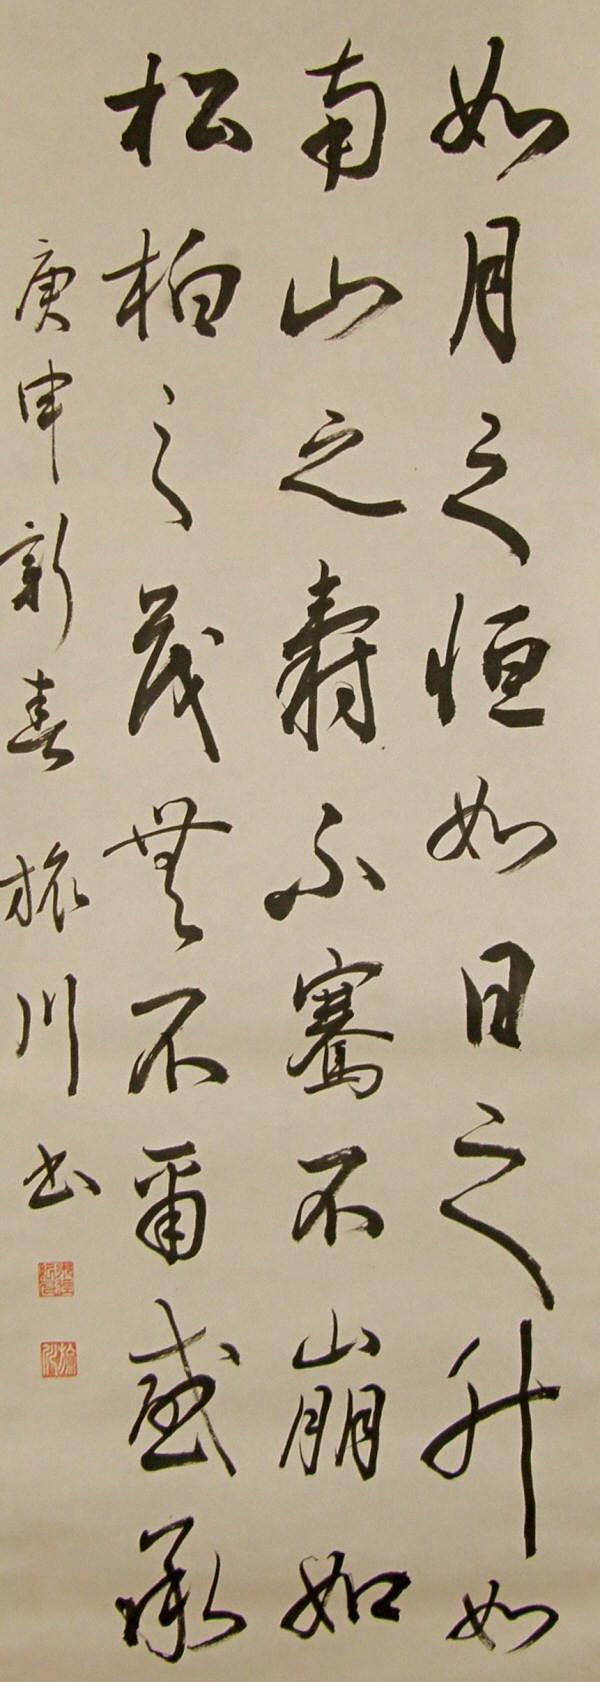 如月之恒如日之升如
南山之壽不騫不崩如
松柏之茂無不爾或承
庚申新春 旅川书